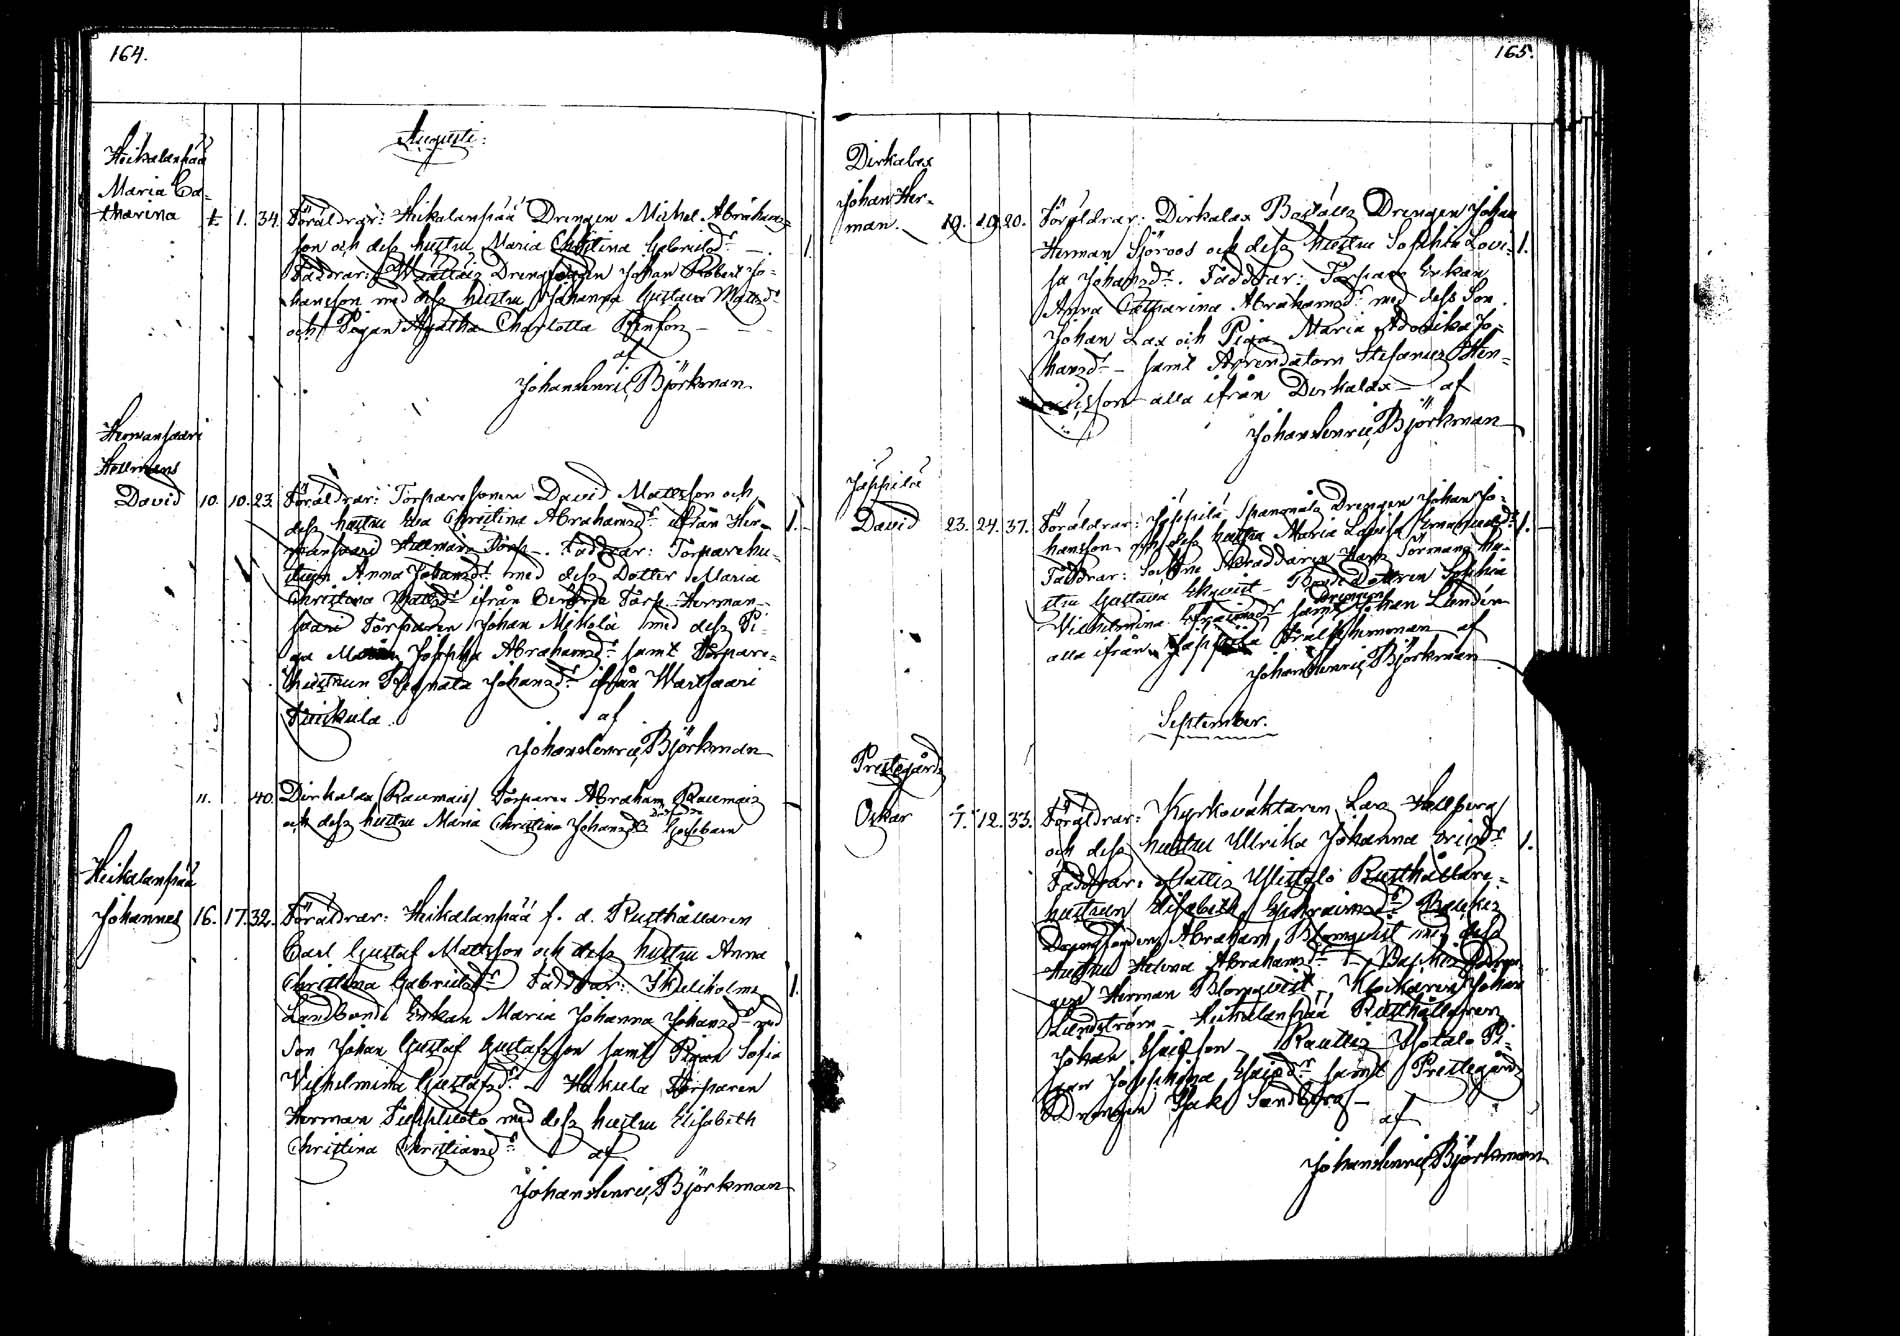 164.
Augusti.
Heikalanpää
Maria Ca-
tharina 1. 1. 34. Föräldrar: Heikalanpää Drengen Michel Abrahams-
son och dess hustru Maria Christina Gabrielsdr 1.
Faddrar: Drengen Johan Robert Jo-
hansson med dess hustru Johanna Gustava Mattsdr
och Pigan Agatha Charlotta
af
Johan Henric Björkman
Hermansaari
Hellmans
David 10. 10. 23. Föräldrar: Torparesonen David Mattsson och
dess hustru Eva Christina Abrahamsdr ifrån Her- 1.
mansaari Torp. Faddrar: Torparehu-
strun Anna Johansdr med dess Dotter Maria
Christina Mattsdr ifrån Torp Herman-
saari Torparen Johan Mikola med dess Pi-
ga Josepha Abrahamsdr samt Torpare-
hustrun Regnata Johansdr ifrån Wartsaari
af
Johan Henric Björkman
11. 40. Dirkalax (Raumais) Torparen Abraham Raumais
och dess hustru Maria Christina Johansdr
Heikalanpää
Johannes 16. 17. 32. Föräldrar: Heikalanpää f. d. Rusthållaren
Carl Gustaf Mattsson och dess hustru Anna
Christina Gabrielsdr Faddrar: 1.
Landbonde Enkan Maria Johanna Johansdr med
Son Johan Gustaf Gustafsson samt Pigan Sofia
Vilhelmina Gustafsdr - Hakula Torparen
Herman med dess hustru Elisabeth
Christina Christiansdr
af
Johan Henric Björkman
165.
Dirkalax
Johan Her-
man. 19. 19. 20. Föräldrar: Dirkalax Boställs Drengen Johan
Herman Sjöroos och dess hustru Sophia Lovi- 1.
sa Johansdr. Faddrar: Torpare Enkan
Anna Catharina Abrahamsdr med dess Son
Johan Lax och Piga Maria Jo-
hansdr - samt Arrendatorn Stefanus Hen-
ricsson alla ifrån Dirkalax af
Johan Henric Björkman
Jäppilä
David 23. 24. 37. Föräldrar: Jäppilä Drengen Johan Jo-
hansson och dess hustru Maria Lovisa Emanuelsdr 1.
Faddrar: Sockne Skraddaren Törmans hu-
stru Gustava Ekqvist - Dottren Sophia
Drengen
Vilhelmina Efraimsdr samt Johan Lundén
alla ifrån Jäppilä af
Johan Henric Björkman
September.
Prestegårds
Oskar 7. 12. 33. Föräldrar: Kyrkovaktaren Lars Hellberg
och dess hustru Ullrika Johanna 1.
Faddrar: Rusthållare-
hustrun Elisabeth Ephraimsdr
Abraham Blomqvist med dess
Hustru Helena Abrahamsdr
Herman Blomqvist - Klockaren Johan
Lundström - Heikalanpää Rusthållaren
Johan Esaisson - Pi-
gan Josephina Esaiedr samt Prestegårds
Drengen Isak Sandberg -
af
Johan Henric Björkman